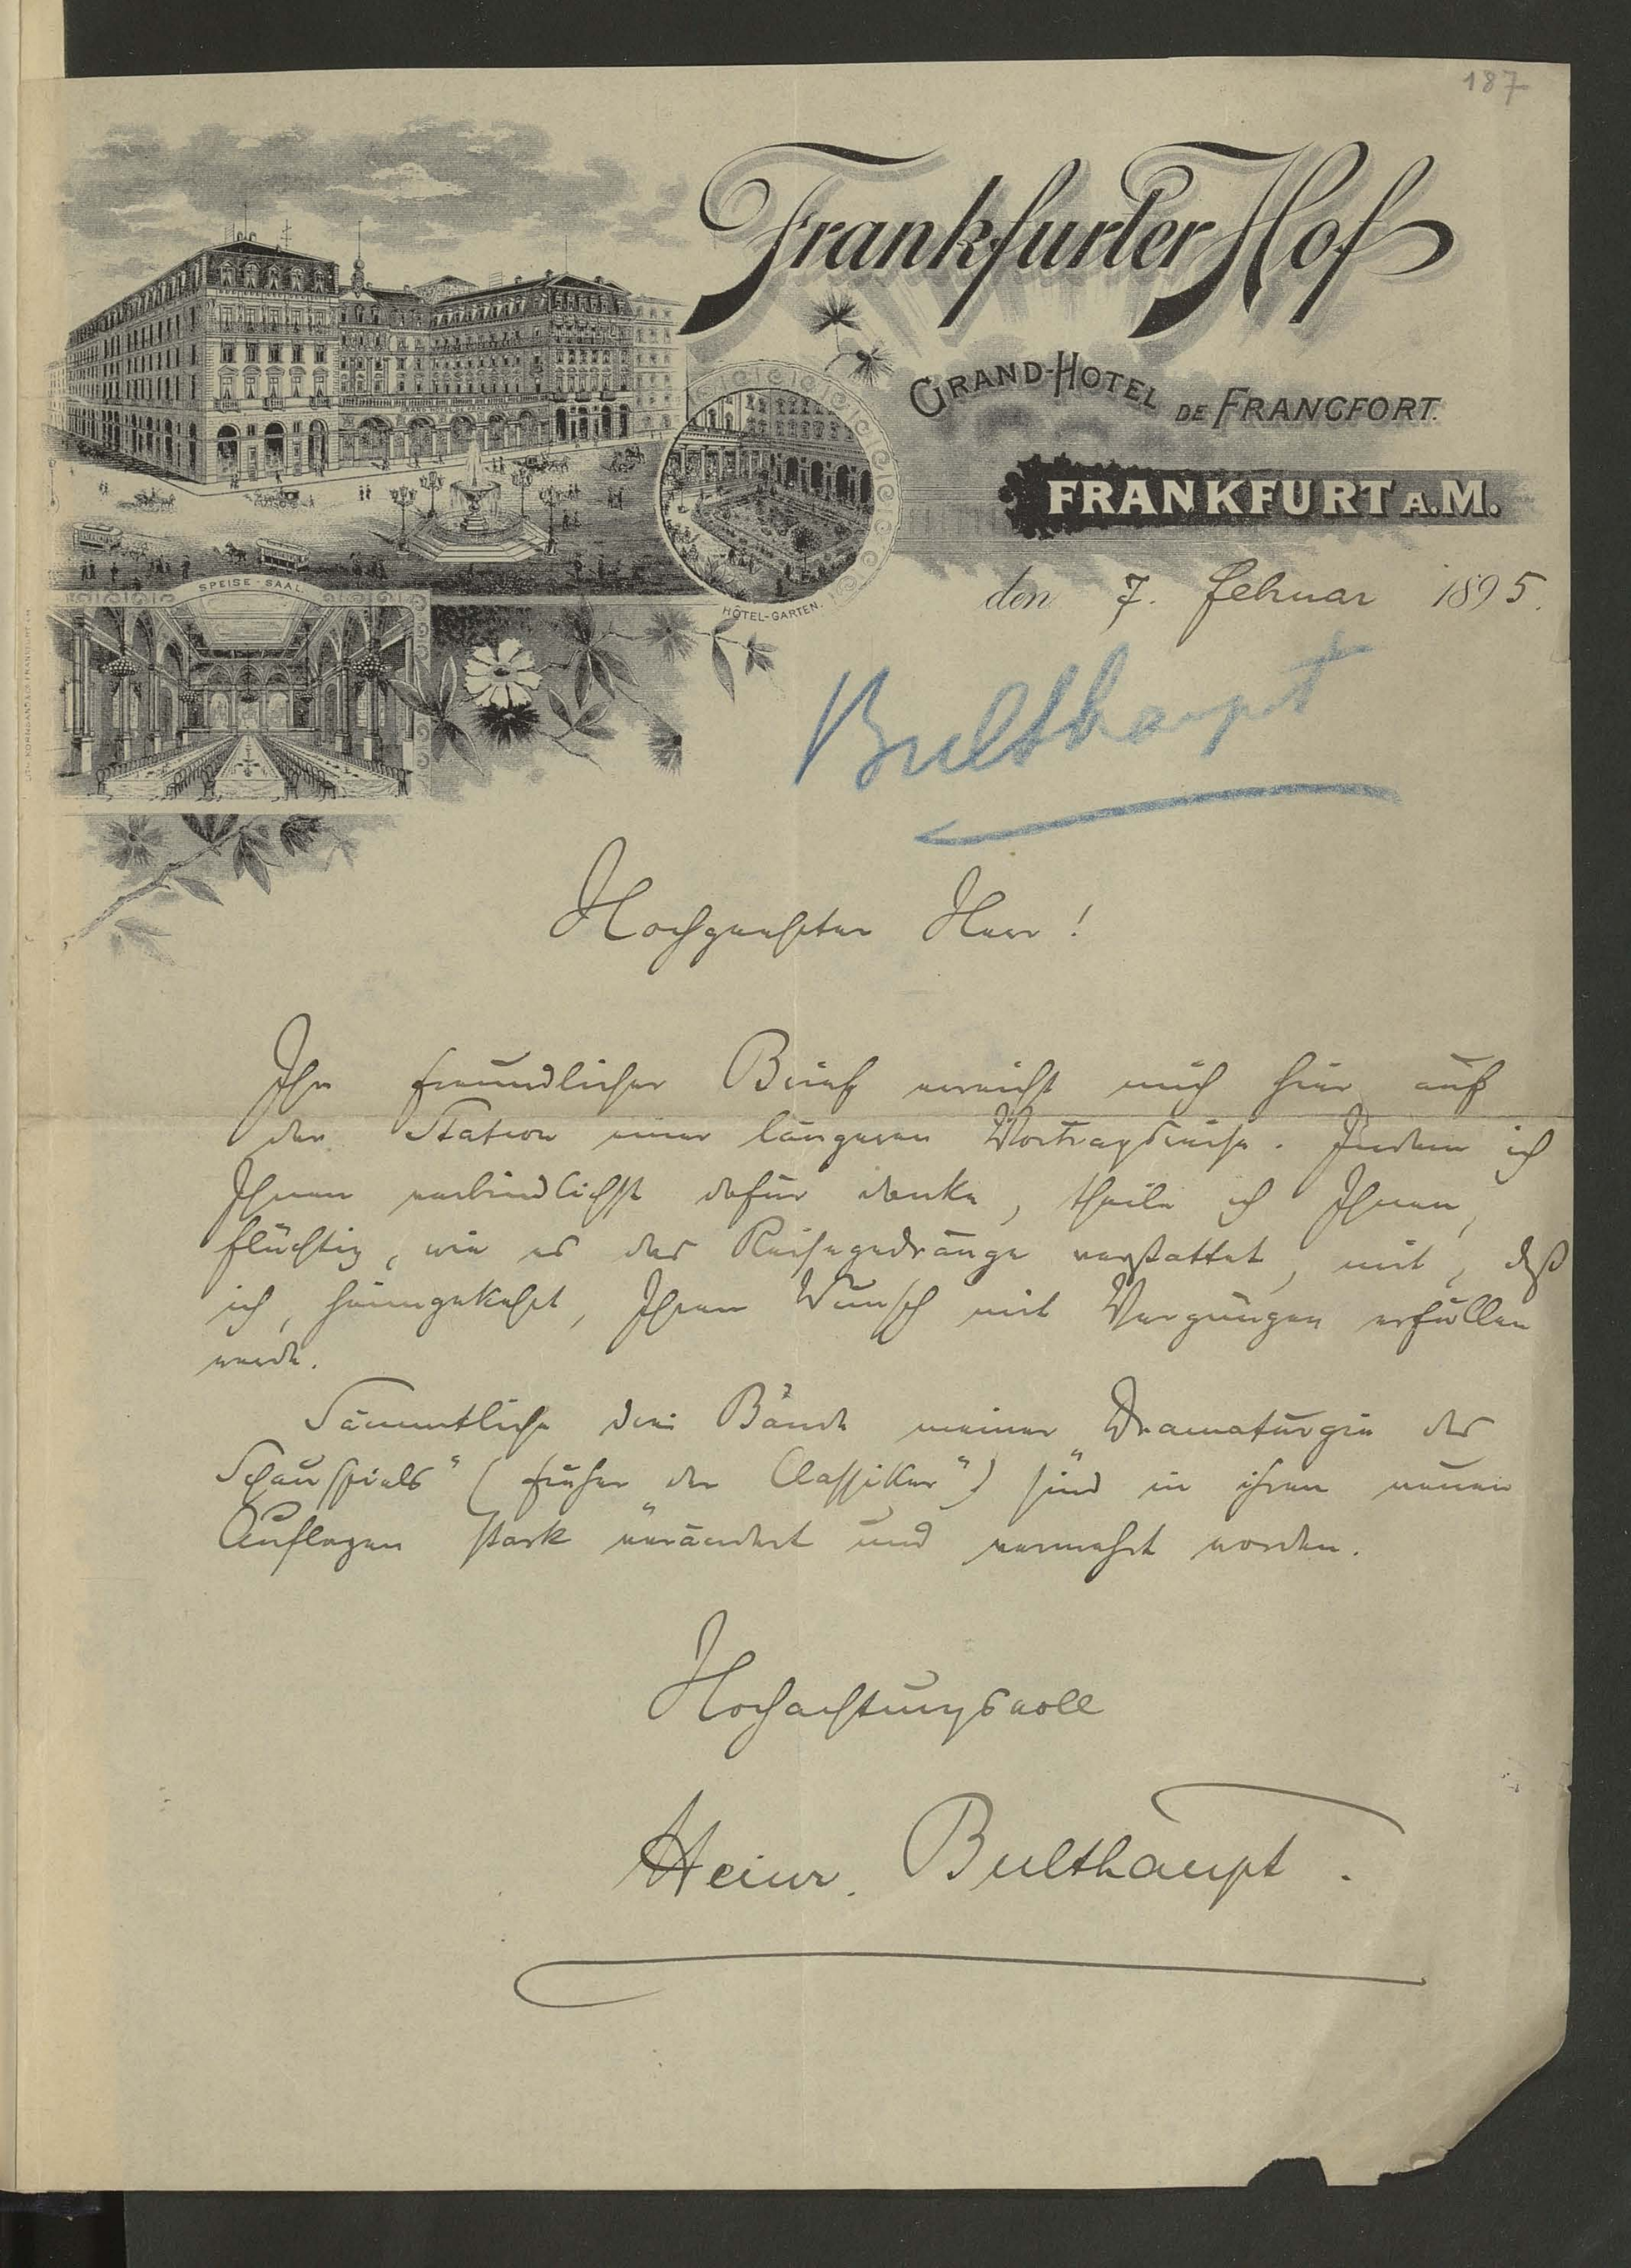 187
Frankfurter Hof
GRAND-HOTEL DE FRANCFORT.
FRANKFURT A.M.
SPEISE-SAAL
HÔTEL-GARTEN.
den 7. Februar 1895.
Bulthaupt
Hochgeehrter Herr!
Ihr freundlicher Brief erreicht mich hier auf
der Station einer längeren Vortragsreise. Indem ich
Ihnen verbindlichst dafür danke, theile ich Ihnen,
flüchtig, wie es das Reisegedränge verstattet, mit, daß
ich, heimgekehrt, Ihren Wunsch mit Vergnügen erfüllen
werde.
Sämmtliche drei Bände meiner "Dramaturgie des
Schauspiels" (früher "der Classiker") sind in ihren neuen
Auflagen stark verändert und vermehrt worden.
Hochachtungsvoll
Heinr. Bulthaupt.